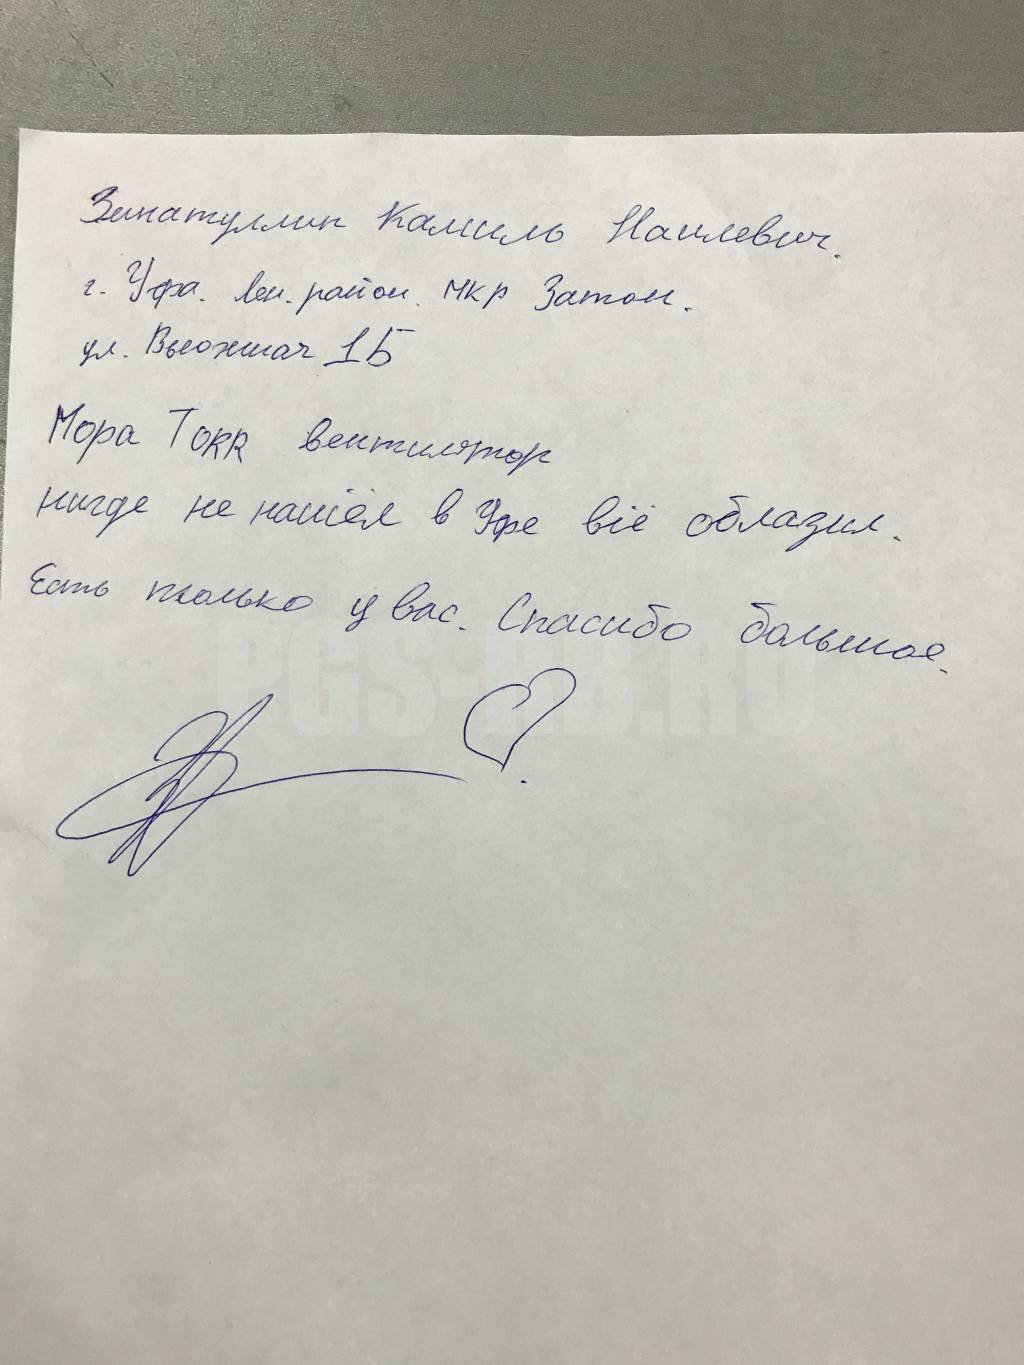 Зинатуллин Камиль Наилевич.
г. Уфа. Лен. район. мкр Затон.
ул. 1Б
Мора Торр вентилятор
нигде не нашёл в Уфе всё облазил.
Есть только у вас. Спасибо большое.
PGS-RB.RU